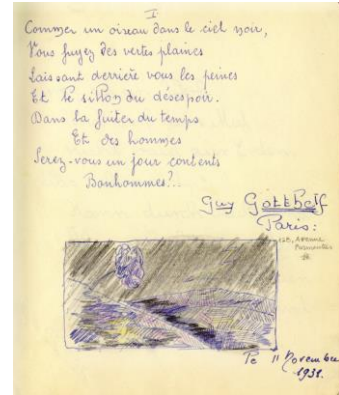 I
Commer un oiseau dans le ciel noir,
Vous fuyez des vertes plaines
Laissant derrière vous les peines
Et le sillon du désespoir.
Dans la fuiter du temps
Et des hommes
Serez-vous un jour contents
Bonhommes?..
Guy Gotthelf
Paris:
Avenue
Le 11 Novembre
1931.